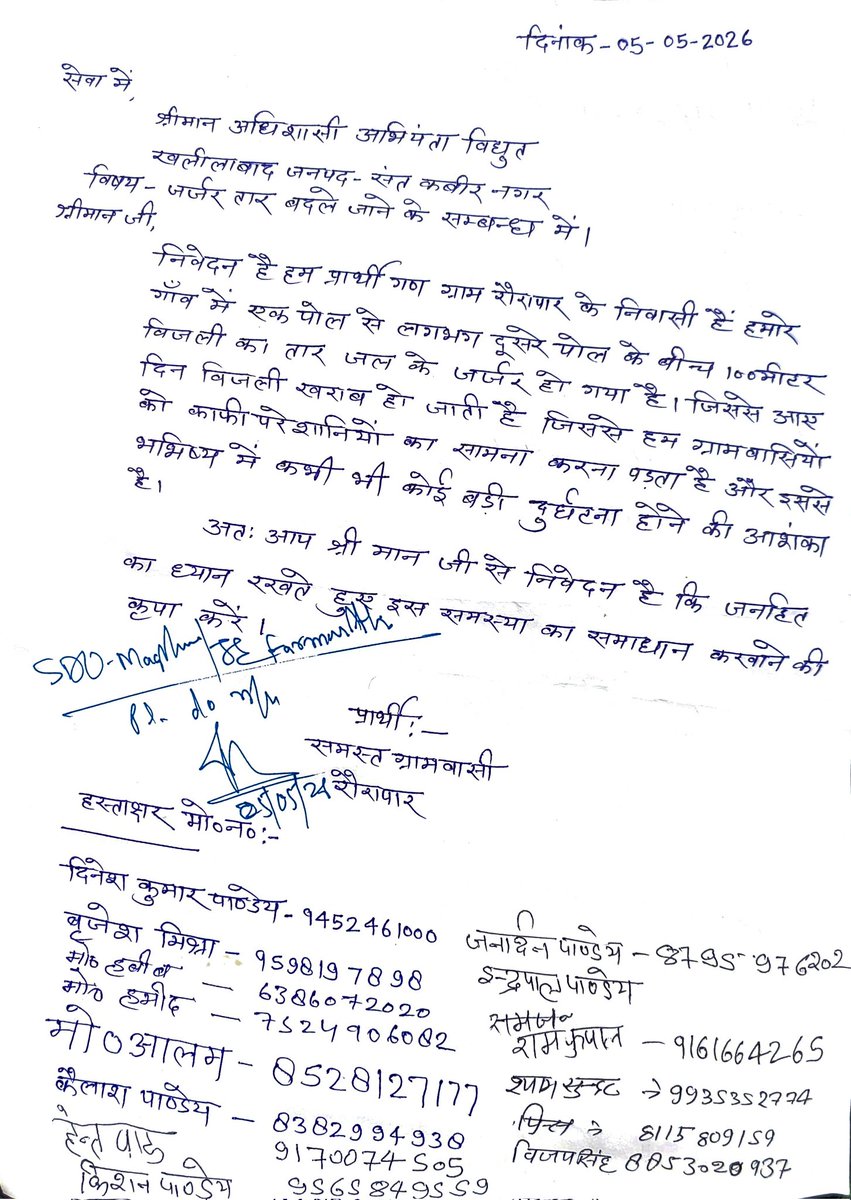 दिनांक - 05-05-2026
सेवा में,
श्रीमान अधिशासी अभियंता विद्युत
खलीलाबाद जनपद - संत कबीर नगर
विषय - जर्जर तार बदले जाने के सम्बन्ध में।
श्रीमान जी,
निवेदन है हम प्रार्थी गण ग्राम रौरापार के निवासी हैं हमारे
गाँव में एक पोल से लगभग दूसरे पोल के बीच 100 मीटर
विजली का तार जल के जर्जर हो गया है। जिससे आए
दिन विजली खराब हो जाती है जिससे हम ग्रामवासियों
को काफी परेशानियों का सामना करना पड़ता है और इससे
भभिष्य में कभी भी कोई बड़ी दुर्घटना होने की आशंका
है।
अतः आप श्री मान जी से निवेदन है कि जनहित
का ध्यान रखते हुए इस समस्या का समाधान करवाने की
कृपा करें।
SDO-
Pl. do
प्रार्थी :-
समस्त ग्रामवासी
रौरापार
हस्ताक्षर मो०नं० :-
दिनेश कुमार पाण्डेय - 9452461000
बृजेश मिश्रा - 9598197898
मो० हबीब - 6386072020
मो० हमीद - 7524906082
मो० आलम - 8528127177
कैलाश पाण्डेय - 8382994938
9170074505
किशन पाण्डेय 9565849559
जनार्दन पाण्डेय - 8795976202
इन्द्रपाल पाण्डेय
रामकृपाल - 9161664265
श्याम सुन्दर → 9935352774
→ 8115809159
विजयसिंह 8853020937